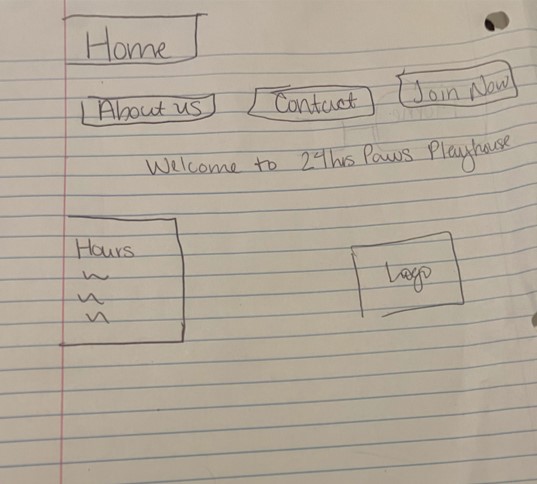 Home
About us Contact Join Now
Welcome to 24hrs Paws Playhouse
Hours
Logo